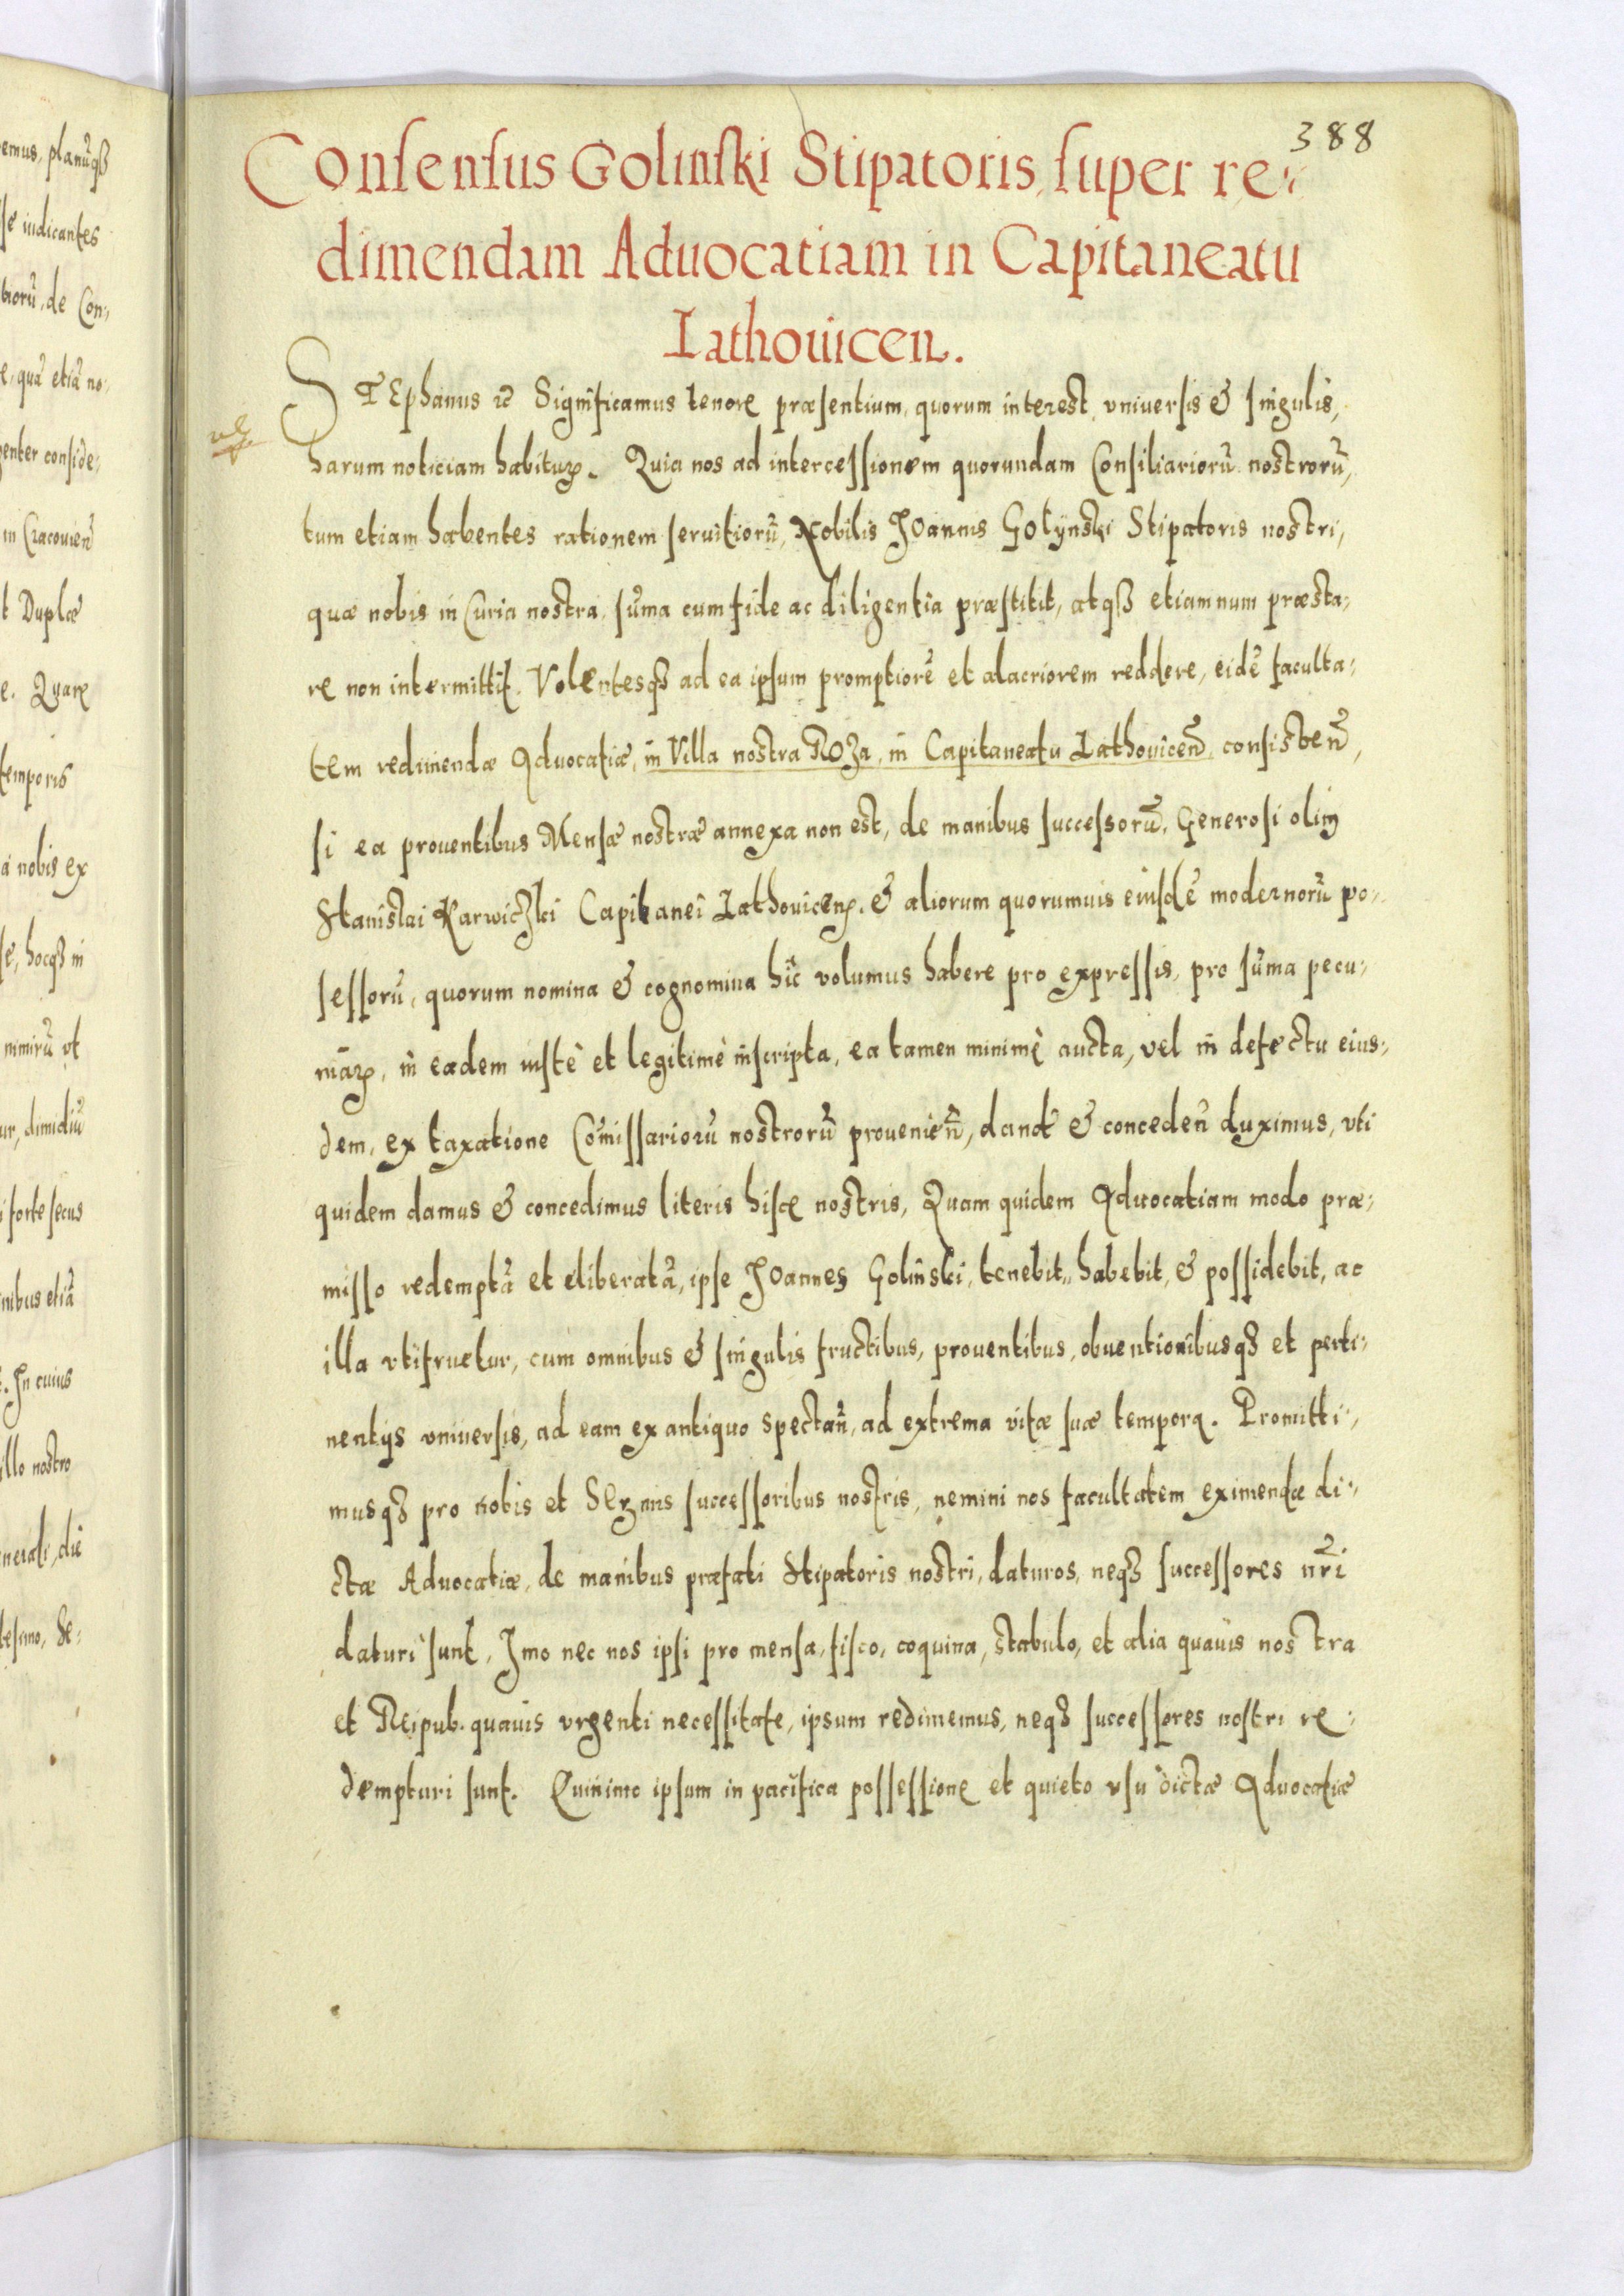 388
Consensus Golinski Stipatoris, super re-
dimendam Aduocatiam in Capitaneatu
Lathouicen.
STEphanus etc Significamus tenore præsentium, quorum interest, vniuersis & singulis,
harum noticiam habitur. Quia nos ad intercessionem quorundam Consiliariorũ nostrorũ,
tum etiam habentes rationem seruitiorũ, Nobilis Joannis Golynski Stipatoris nostri,
quæ nobis in Curia nostra, sũma cum fide ac diligentia præstitit, atqꝫ etiamnum præsta-
re non intermittit. Volentesqꝫ ad ea ipsum promptiorẽ et alacriorem reddere, eidẽ faculta-
tem redimendæ Aduocatiæ, in Villa nostra ROZa, in Capitaneatu Lathouiceñ consisteñ,
si ea prouentibus Mensæ nostræ annexa non est, de manibus successorũ, Generosi olim
Stanislai Karwiczki Capitanei Lathouicen. & aliorum quorumuis eiusdẽ modernorũ po-
sessorũ, quorum nomina & cognomina hîc volumus habere pro expressis, pro sũma pecu-
niar, in eadem iustè et legitimè inscripta, ea tamen minimè aucta, vel in defectu eius-
dem, ex taxatione Cõmissariorũ nostrorũ prouenieñ, dand & concedeñ duximus, vti
quidem damus & concedimus literis hisce nostris, Quam quidem Aduocatiam modo præ-
misso redemptã et eliberatã, ipse Joannes Golinski, tenebit, habebit, & possidebit, ac
illa vtifruetur, cum omnibus & singulis fructibus, prouentibus, obuentionibusqꝫ et perti-
nentijs vniuersis, ad eam ex antiquo spectañ, ad extrema vitæ suæ tempora. Promitti-
musqꝫ pro nobis et Sermis successoribus nostris, nemini nos facultatem eximendæ di-
ctæ Aduocatiæ, de manibus præfati Stipatoris nostri, daturos, neqꝫ successores nr̃i
daturi sunt, Jmo nec nos ipsi pro mensa, fisco, coquina, stabulo, et alia quauis nostra
et Reipub. quauis vrgenti necessitate, ipsum redimemus, neqꝫ successores nostri re-
dempturi sunt. Quinimo ipsum in pacifica possessione et quieto vsu dictæ Aduocatiæ